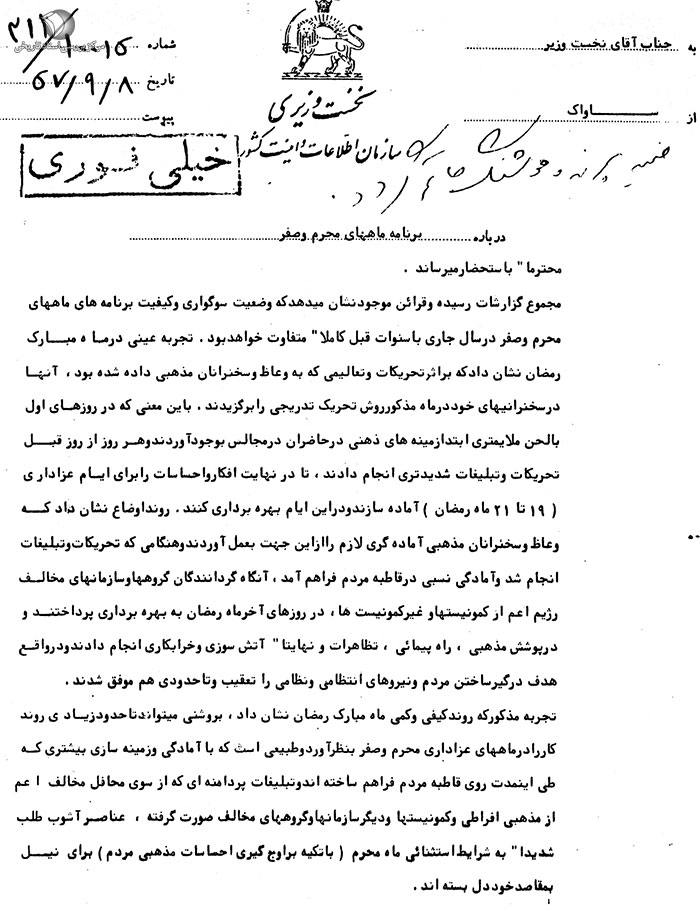 به جناب آقای نخست وزیر
از ســـــاواک
نخست وزیری
سازمان اطلاعات و امنیت کشور
شماره ۳۱۲/۱۰۰۱۵
تاریخ ۵۷/۹/۸
پیوست
خیلی فوری
درباره برنامه ماههای محرم وصفر
محترما" باستحضارمیرساند .
مجموع گزارشات رسیده وقرائن موجودنشان میدهدکه وضعیت سوگواری وکیفیت برنامه های ماههای
محرم وصفر درسال جاری باسنوات قبل کاملا" متفاوت خواهدبود . تجربه عینی درماه مبـــارک
رمضان نشان دادکه براثرتحریکات وتعالیمی که به وعاظ وسخنرانان مذهبی داده شده بود ، آنهـا
درسخنرانیهای خوددرماه مذکورروش تحریک تدریجی رابرگزیدند . باین معنی که در روزهـای اول
بالحن ملایمتری ابتدازمینه های ذهنی درحاضران درمجالس بوجودآوردندوهر روز از روز قبـــل
تحریکات وتبلیغات شدیدتری انجام دادند ، تا در نهایت افکارواحساسات رابرای ایـام عزاداری
( ۱۹ تا ۲۱ ماه رمضان ) آماده سازندودراین ایام بهره برداری کنند . رونداوضاع نشان داد کـــه
وعاظ وسخنرانان مذهبی آماده گری لازم راازاین جهت بعمل آوردندوهنگامی که تحریکات‌وتبلیغات
انجام شد وآمادگی نسبی درقاطبه مردم فراهم آمد ، آنگاه گردانندگان گروههاوسازمانهای مخالـف
رژیم اعم از کمونیستهاو غیرکمونیست ها ، در روزهای آخرماه رمضان به بهره برداری پرداختنــد و
درپوشش مذهبی ، راه پیمائی ، تظاهرات و نهایتا" آتش سوزی وخرابکاری انجام دادندودرواقـع
هدف درگیرساختن مردم ونیروهای انتظامی ونظامی را تعقیب وتاحدودی هم موفق شدند .
تجربه مذکورکه روندکیفی وکمی ماه مبارک رمضان نشان داد ، بروشنی میتواندتاحدودزیادی روند
کاررادرماههای عزاداری محرم وصفر بنظرآوردوطبیعی است که با آمادگی وزمینه سازی بیشتری کـه
طی اینمدت روی قاطبه مردم فراهم ساخته اندوتبلیغات پردامنه ای که از سوی محافل مخالف اعم
از مذهبی افراطی وکمونیستها ودیگرسازمانهاوگروههای مخالف صورت گرفته ، عناصـر آشوب طلب
شدیدا" به شرایط استثنائی ماه محرم ( باتکیه براوج گیری احساسات مذهبی مردم ) برای نیـــل
بمقاصدخوددل بسته اند .